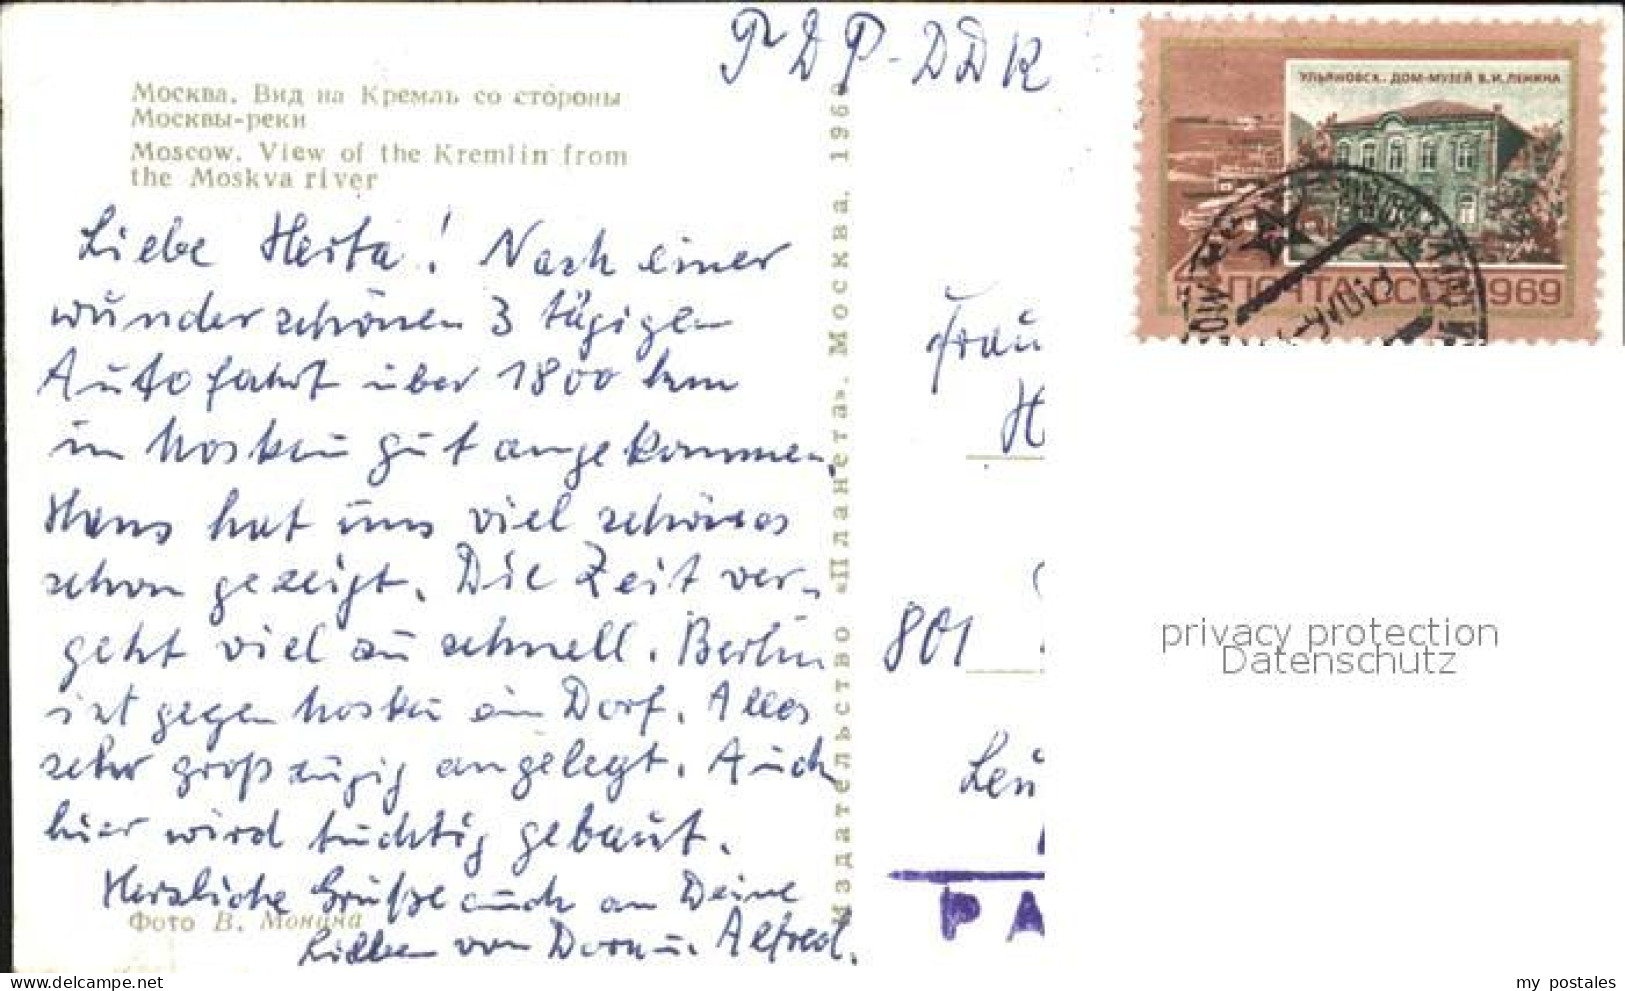 ГДР-DDR
Москва. Вид на Кремль со стороны
Москвы-реки
Moscow. View of the Kremlin from
the Moskva river
Liebe Herta! Nach einer
wunderschönen 3 tägigen
Autofahrt über 1800 km
in Moskau gut angekommen.
Hans hat uns viel schönes
schon gezeigt. Die Zeit ver-
geht viel zu schnell. Berlin
ist gegen Moskau ein Dorf. Alles
sehr großzügig angelegt. Auch
hier wird tüchtig gebaut.
Herzliche Grüße auch an Deine
Lieben von Dora u. Alfred.
Фото В. Монина
Издательство «Планета». Москва. 196
УЛЬЯНОВСК. ДОМ-МУЗЕЙ В.И. ЛЕНИНА
ПОЧТА СССР 1969
Frau
H
801
Leu
PA
privacy protection
Datenschutz
my postales
https://www.delcampe.net